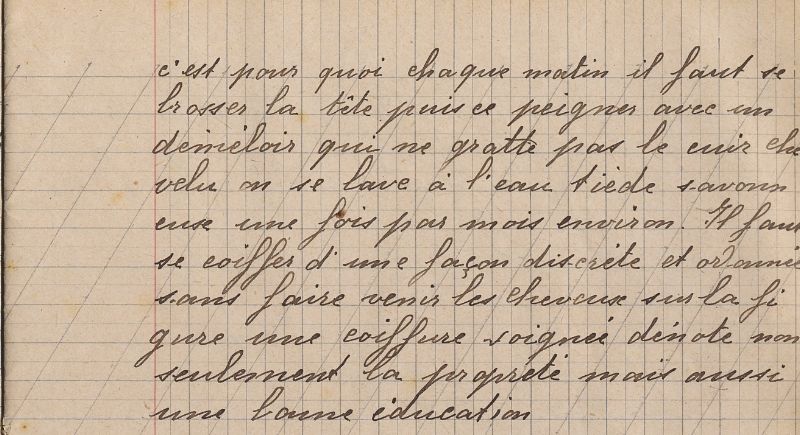 c'est pour quoi chaque matin il faut se
brosser la tête puis ce peigner avec un
démêloir qui ne gratte pas le cuir che
velu on se lave à l'eau tiède savonn
euse une fois par mois environ. Il faut
se coiffer d'une façon discrète et ordonnée
sans faire venir les cheveux sur la fi
gure une coiffure soignée dénote non
seulement la propreté mais aussi
une bonne éducation